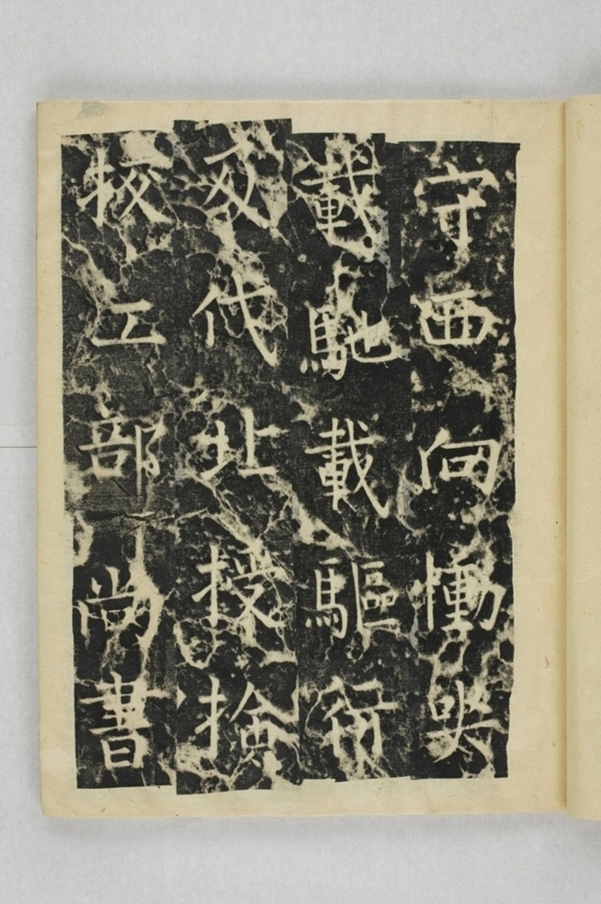 守西向慟哭
載馳載驅行
及代北授撿
挍工部尚書